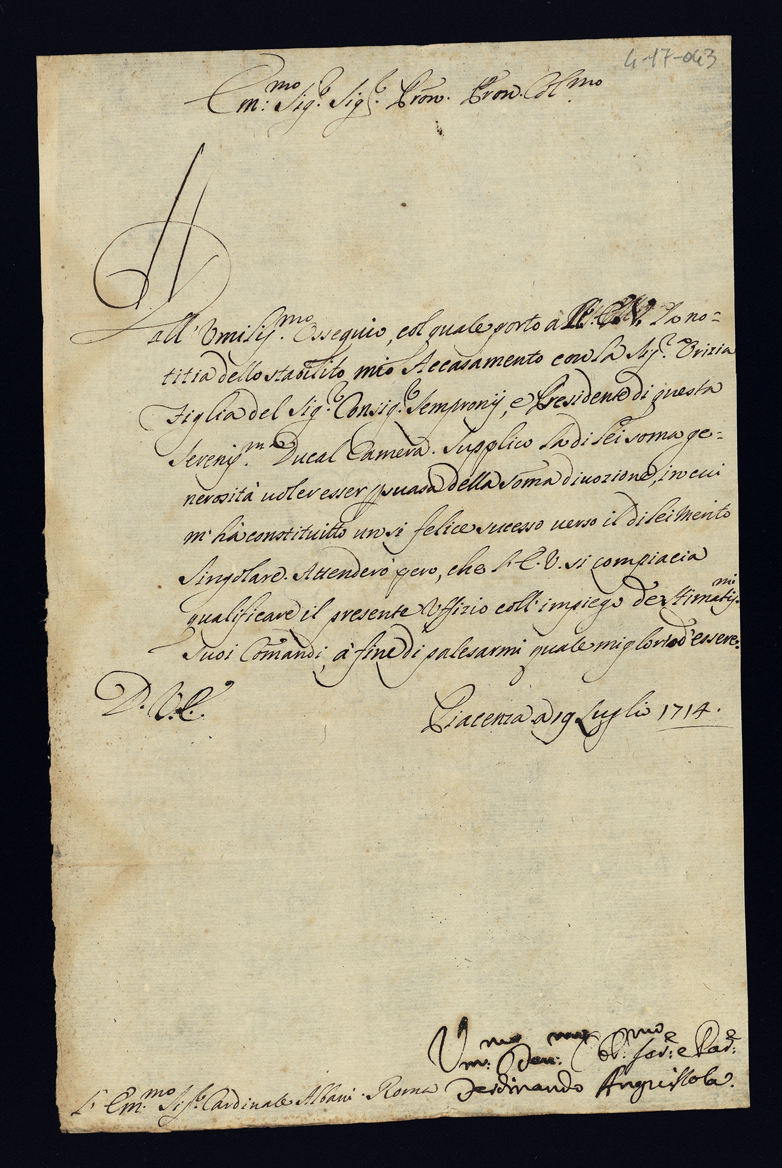 4-17-043
Em:mo Sig.r Sig.r Pron. Pron. Col.mo
Dall' Umiliss.mo Ossequio, col quale porto à V. la no-
titia dello stabilito mio Accasamento con la Sig.ra
Figlia del Sig.r Consig.r Sempronij, e Presidente di questa
Sereniss.ma Ducal Camera. Supplico la di Lei soma ge-
nerosità voler esser psuasa della soma divozione, in cui
m' hà constituitto un si felice sucesso verso il di Lei Merito
Singolare. Attenderò però, che l' E. V. si compiacia
qualificare il presente Uffizio coll' impiego de stimatiss.mi
Suoi Comandi, à fine di palesarmi quale mi glorio d'essere.
D. V. E.
Piacenza à 19 Luglio 1714.
Um:mo Dev:mo Obl:mo Ser.e
Ferdinando Anguissola.
S.r Em.mo Sig.r Cardinale Albani. Roma